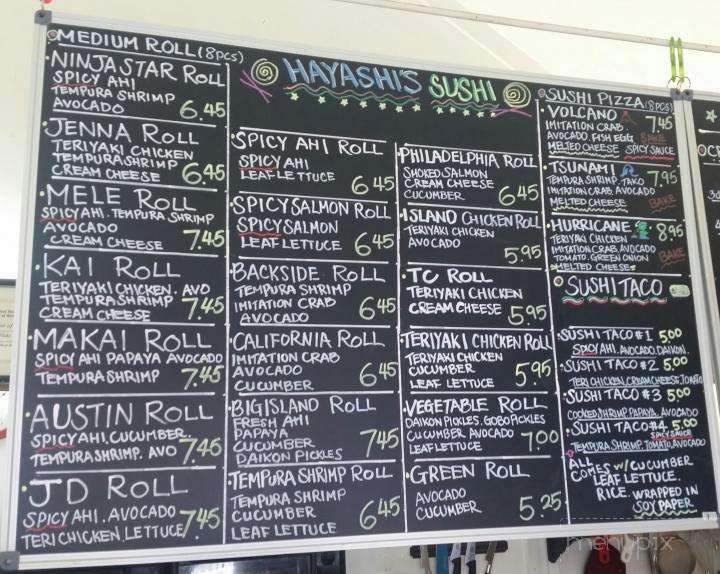 MEDIUM ROLL (8pcs)
NINJASTAR ROLL
SPICY AHI
TEMPURA SHRIMP
AVOCADO 6.45
JENNA ROLL
TERIYAKI CHICKEN
TEMPURA SHRIMP
CREAM CHEESE 6.45
MELE ROLL
SPICY AHI. TEMPURA SHRIMP
AVOCADO
CREAM CHEESE 7.45
KAI ROLL
TERIYAKI CHICKEN. AVO
TEMPURA SHRIMP
CREAM CHEESE 7.45
MAKAI ROLL
SPICY AHI PAPAYA AVOCADO
TEMPURA SHRIMP 7.45
AUSTIN ROLL
SPICY AHI. CUCUMBER
TEMPURA SHRIMP. AVO 7.45
JD ROLL
SPICY AHI. AVOCADO
TERI CHICKEN. LETTUCE 7.45
HAYASHI'S SUSHI
SPICY AHI ROLL
SPICY AHI
LEAF LETTUCE 6.45
SPICY SALMON ROLL
SPICY SALMON
LEAF LETTUCE 6.45
BACKSIDE ROLL
TEMPURA SHRIMP
IMITATION CRAB
AVOCADO 6.45
CALIFORNIA ROLL
IMITATION CRAB
AVOCADO
CUCUMBER 6.45
BIG ISLAND ROLL
FRESH AHI
PAPAYA
CUCUMBER
DAIKON PICKLES 7.45
TEMPURA SHRIMP ROLL
TEMPURA SHRIMP
CUCUMBER
LEAF LETTUCE 6.45
PHILADELPHIA ROLL
SMOKED SALMON
CREAM CHEESE
CUCUMBER 6.45
ISLAND CHICKEN ROLL
TERIYAKI CHICKEN
AVOCADO 5.95
TC ROLL
TERIYAKI CHICKEN
CREAM CHEESE 5.95
TERIYAKI CHICKEN ROLL
TERIYAKI CHICKEN
CUCUMBER
LEAF LETTUCE 5.95
VEGETABLE ROLL
DAIKON PICKLES. GOBO PICKLES
CUCUMBER AVOCADO
LEAF LETTUCE 7.00
GREEN ROLL
AVOCADO
CUCUMBER 5.25
SUSHI PIZZA (8pcs)
VOLCANO 7.45
IMITATION CRAB.
AVOCADO. FISH EGG BAKE
MELTED CHEESE SPICY SAUCE
TSUNAMI 7.95
TEMPURA SHRIMP. TAKO
IMITATION CRAB. AVOCADO
MELTED CHEESE BAKE
HURRICANE 8.95
TERIYAKI CHICKEN
IMITATION CRAB. AVOCADO
TOMATO. GREEN ONION BAKE
MELTED CHEESE
SUSHI TACO
SUSHI TACO #1 5.00
SPICY AHI. AVOCADO. DAIKON.
SUSHI TACO #2 5.00
TERI CHICKEN. CREAM CHEESE. TOMATO
SUSHI TACO #3 5.00
COOKED SHRIMP. PAPAYA. AVOCADO
SUSHI TACO #4 5.00
SPICY SAUCE
TEMPURA SHRIMP. TOMATO. AVOCADO
ALL COMES W/ CUCUMBER
LEAF LETTUCE.
RICE. WRAPPED IN
SOY PAPER
menupix